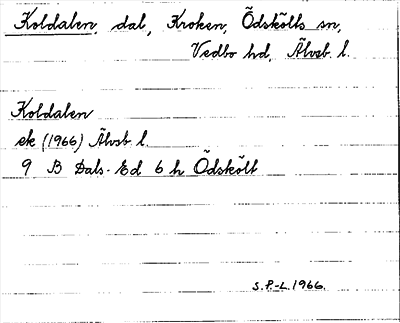 Koldalen, dal, Kroken, Ödskölts sn,
Vedbo hd, Älvsb. l.
Koldalen
ek (1966) Älvsb l.
9 B Dals-Ed 6 h Ödskölt
S.F.-L. 1966.